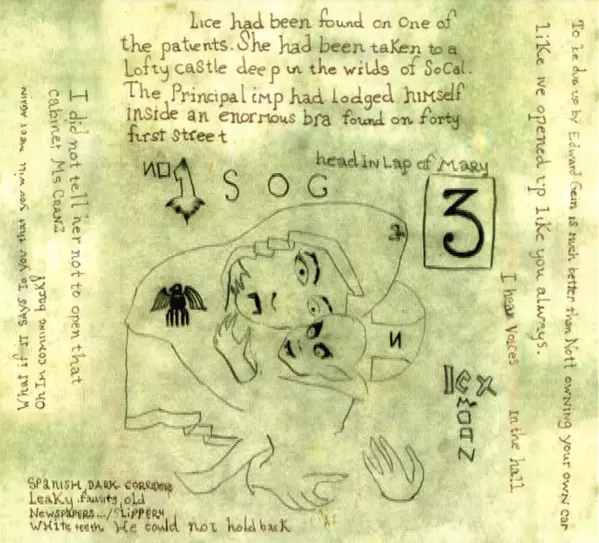 Lice had been found on one of
the patients. She had been taken to a
Lofty castle deep in the wilds of SoCal.
The Principal imp had lodged himself
inside an enormous bra found on forty
first street
head in Lap of Mary
NO 1 S O G
3
I did not tell her not to open that
cabinet Ms CRANZ
Oh Im coming back!
What if IT SAYS To you that you will meet AGAIN
To be dug up by Edward Gein is much better than Nott owning your own car
Like we opened up like you always.
I hear Voices in the hall
N
moon
SPANISH DARK CORRIDORS
Leaky faucits, old
Newspapers.../SLIPPERY
White teeth He could not hold back